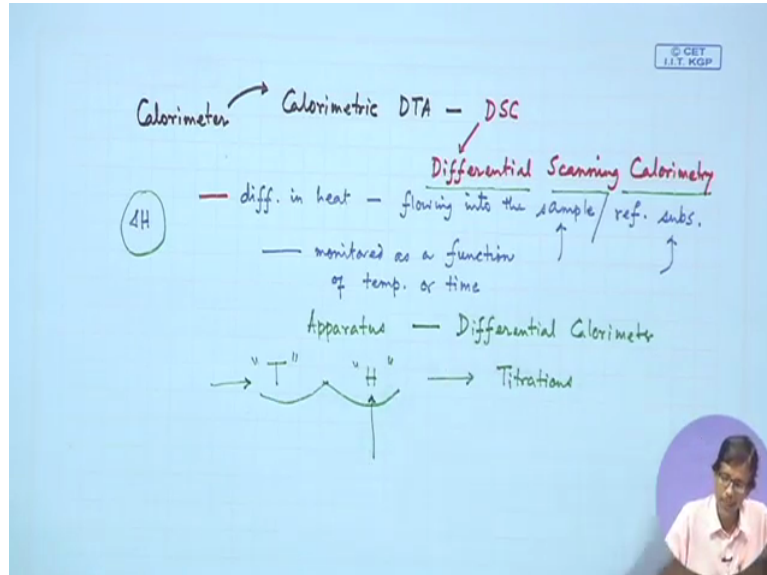 © CET
I.I.T. KGP
Calorimeter Calorimetric DTA — DSC
Differential Scanning Calorimetry
— diff. in heat — flowing into the sample / ref. subs.
ΔH
— monitored as a function
of temp. or time
Apparatus — Differential Calorimeter
"T" "H" → Titrations